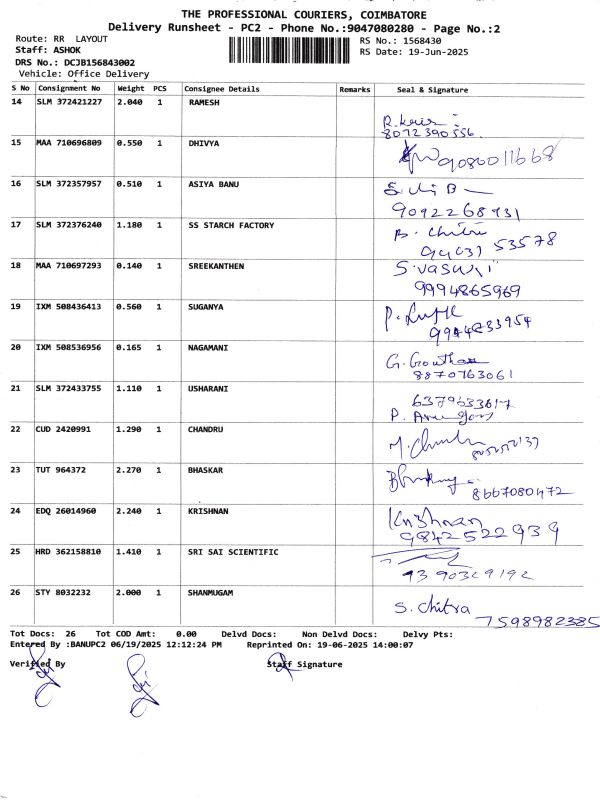 THE PROFESSIONAL COURIERS, COIMBATORE
Delivery Runsheet - PC2 - Phone No.:9047080280 - Page No.:2
Route: RR LAYOUT
RS No.: 1568430
Staff: ASHOK
RS Date: 19-Jun-2025
DRS No.: DCJB156843002
Vehicle: Office Delivery
S No Consignment No Weight PCS Consignee Details Remarks Seal & Signature
14 SLM 372421227 2.040 1 RAMESH
8072390556
15 MAA 710696809 0.550 1 DHIVYA 9080011668
16 SLM 372357957 0.510 1 ASIYA BANU
9092268931
17 SLM 372376240 1.180 1 SS STARCH FACTORY B. Chitra
53578
18 MAA 710697293 0.140 1 SREEKANTHEN
9994865969
19 IXM 508436413 0.560 1 SUGANYA
9944833954
20 IXM 508536956 0.165 1 NAGAMANI G. Gowtham
8870763061
21 SLM 372433755 1.110 1 USHARANI 6379633617
22 CUD 2420991 1.290 1 CHANDRU
23 TUT 964372 2.270 1 BHASKAR
8667080472
24 EDQ 26014960 2.240 1 KRISHNAN Krishnan
9842522939
25 HRD 362158810 1.410 1 SRI SAI SCIENTIFIC
9390329192
26 STY 8032232 2.000 1 SHANMUGAM S. Chitra
7598982385
Tot Docs: 26 Tot COD Amt: 0.00 Delvd Docs: Non Delvd Docs: Delvy Pts:
Entered By :BANUPC2 06/19/2025 12:12:24 PM Reprinted On: 19-06-2025 14:00:07
Verified By Staff Signature